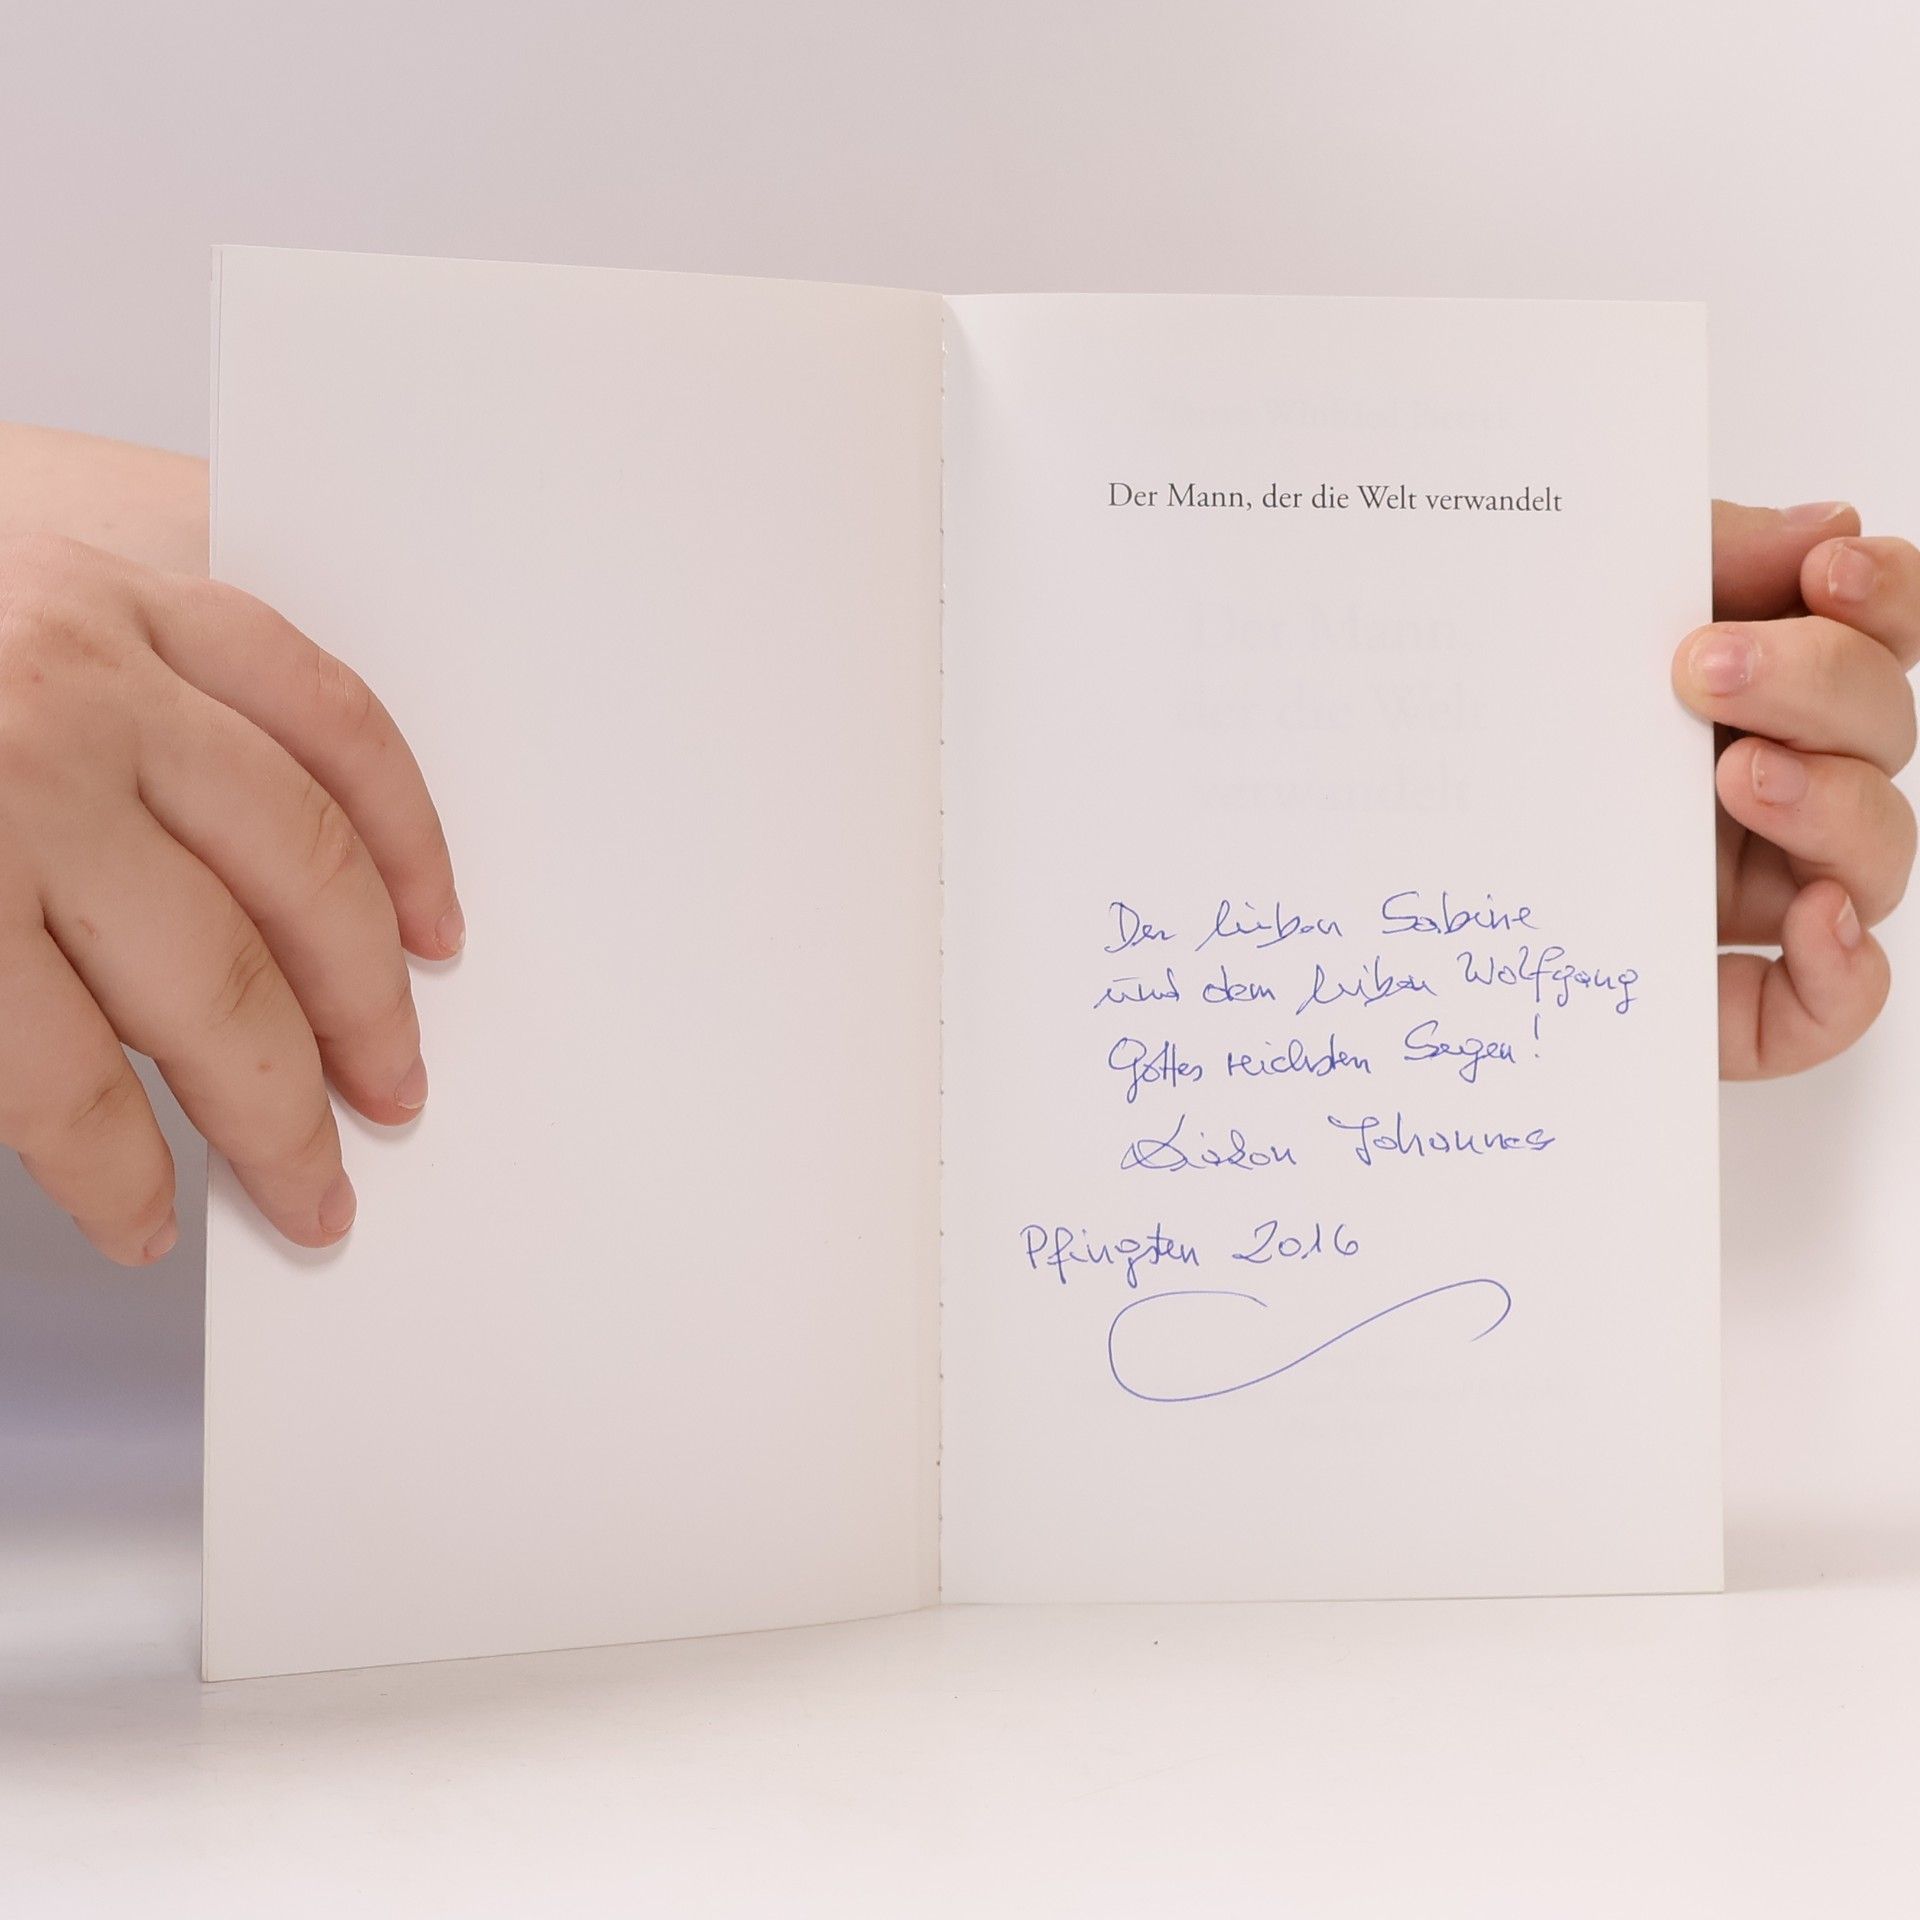 Der Mann, der die Welt verwandelt
Der lieben Sabine
und dem lieben Wolfgang
Gottes reichsten Segen!
Diakon Johannes
Pfingsten 2016